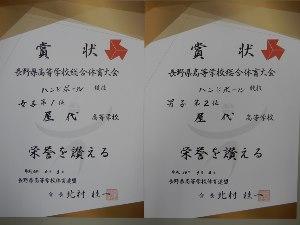 賞状
長野県高等学校総合体育大会
ハンドボール 競技
女子 第1位
屋代 高等学校
栄誉を讃える
長野県高等学校体育連盟
会長 北村桂一
賞状
長野県高等学校総合体育大会
ハンドボール 競技
男子 第2位
屋代 高等学校
栄誉を讃える
長野県高等学校体育連盟
会長 北村桂一